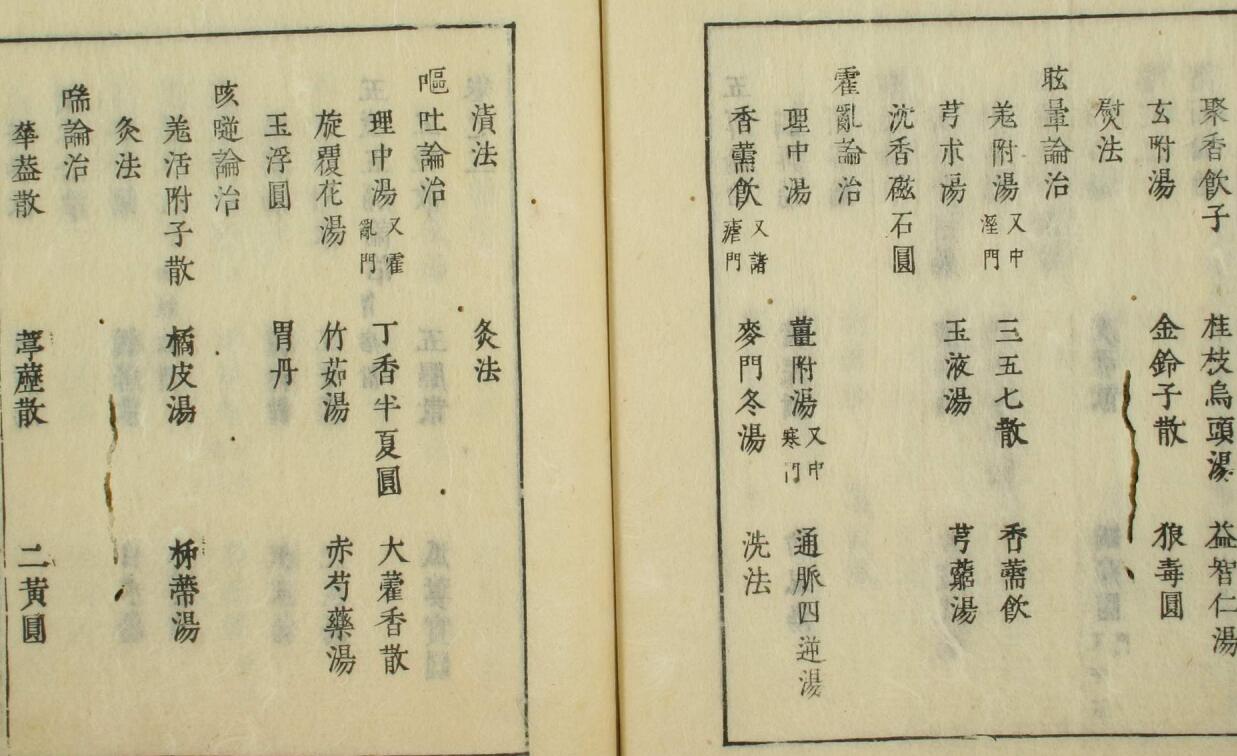 聚香飲子 桂枝烏頭湯 益智仁湯
玄附湯 金鈴子散 狼毒圓
熨法
眩暈論治
羌附湯又中溼門 三五七散 香薷飲
芎朮湯 玉液湯 芎藭湯
沈香磁石圓
霍亂論治
理中湯 薑附湯又中寒門 通脈四逆湯
香薷飲又諸瘧門 麥門冬湯 洗法
漬法 灸法
嘔吐論治
理中湯又霍亂門 丁香半夏圓 大藿香散
旋覆花湯 竹茹湯 赤芍藥湯
玉浮圓 胃丹
咳噦論治
羌活附子散 橘皮湯 柿蔕湯
灸法
喘論治
華葢散 葶藶散 二黃圓